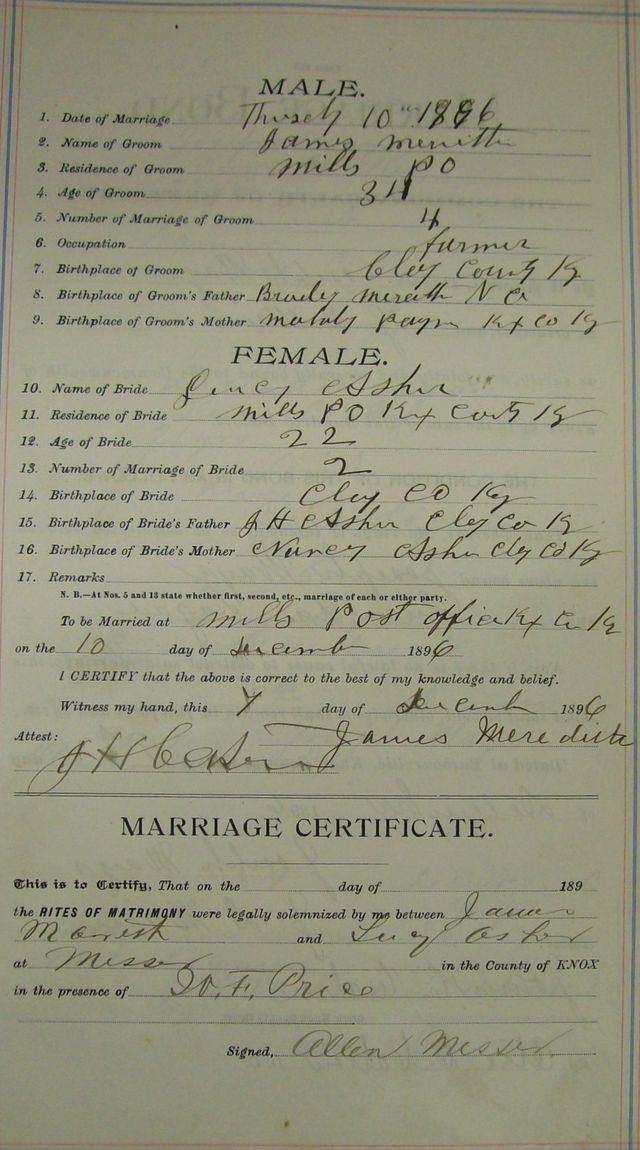 MALE.
1. Date of Marriage Thursdy 10th 1896
2. Name of Groom James Merritth
3. Residence of Groom Mills PO
4. Age of Groom 34
5. Number of Marriage of Groom 4
6. Occupation farmer
7. Birthplace of Groom Cley County Ky
8. Birthplace of Groom's Father Merith N C
9. Birthplace of Groom's Mother Payn Kx Co Ky
FEMALE.
10. Name of Bride Asher
11. Residence of Bride Mills PO Kx Ky
12. Age of Bride 22
13. Number of Marriage of Bride 2
14. Birthplace of Bride Cley CO Ky
15. Birthplace of Bride's Father J H Asher Cley Co Ky
16. Birthplace of Bride's Mother Nancy Asher Cley Co Ky
17. Remarks
N. B.—At Nos. 5 and 13 state whether first, second, etc., marriage of each or either party.
To be Married at Mills Post office Kx Co Ky
on the 10 day of 1896
I CERTIFY that the above is correct to the best of my knowledge and belief.
Witness my hand, this day of 1896
Attest: James Meredith
J H
MARRIAGE CERTIFICATE.
This is to Certify, That on the day of 189
the RITES OF MATRIMONY were legally solemnized by me between James
and Lucy Asher
at Messer in the County of KNOX
in the presence of F. Price
Signed, Allen Messer